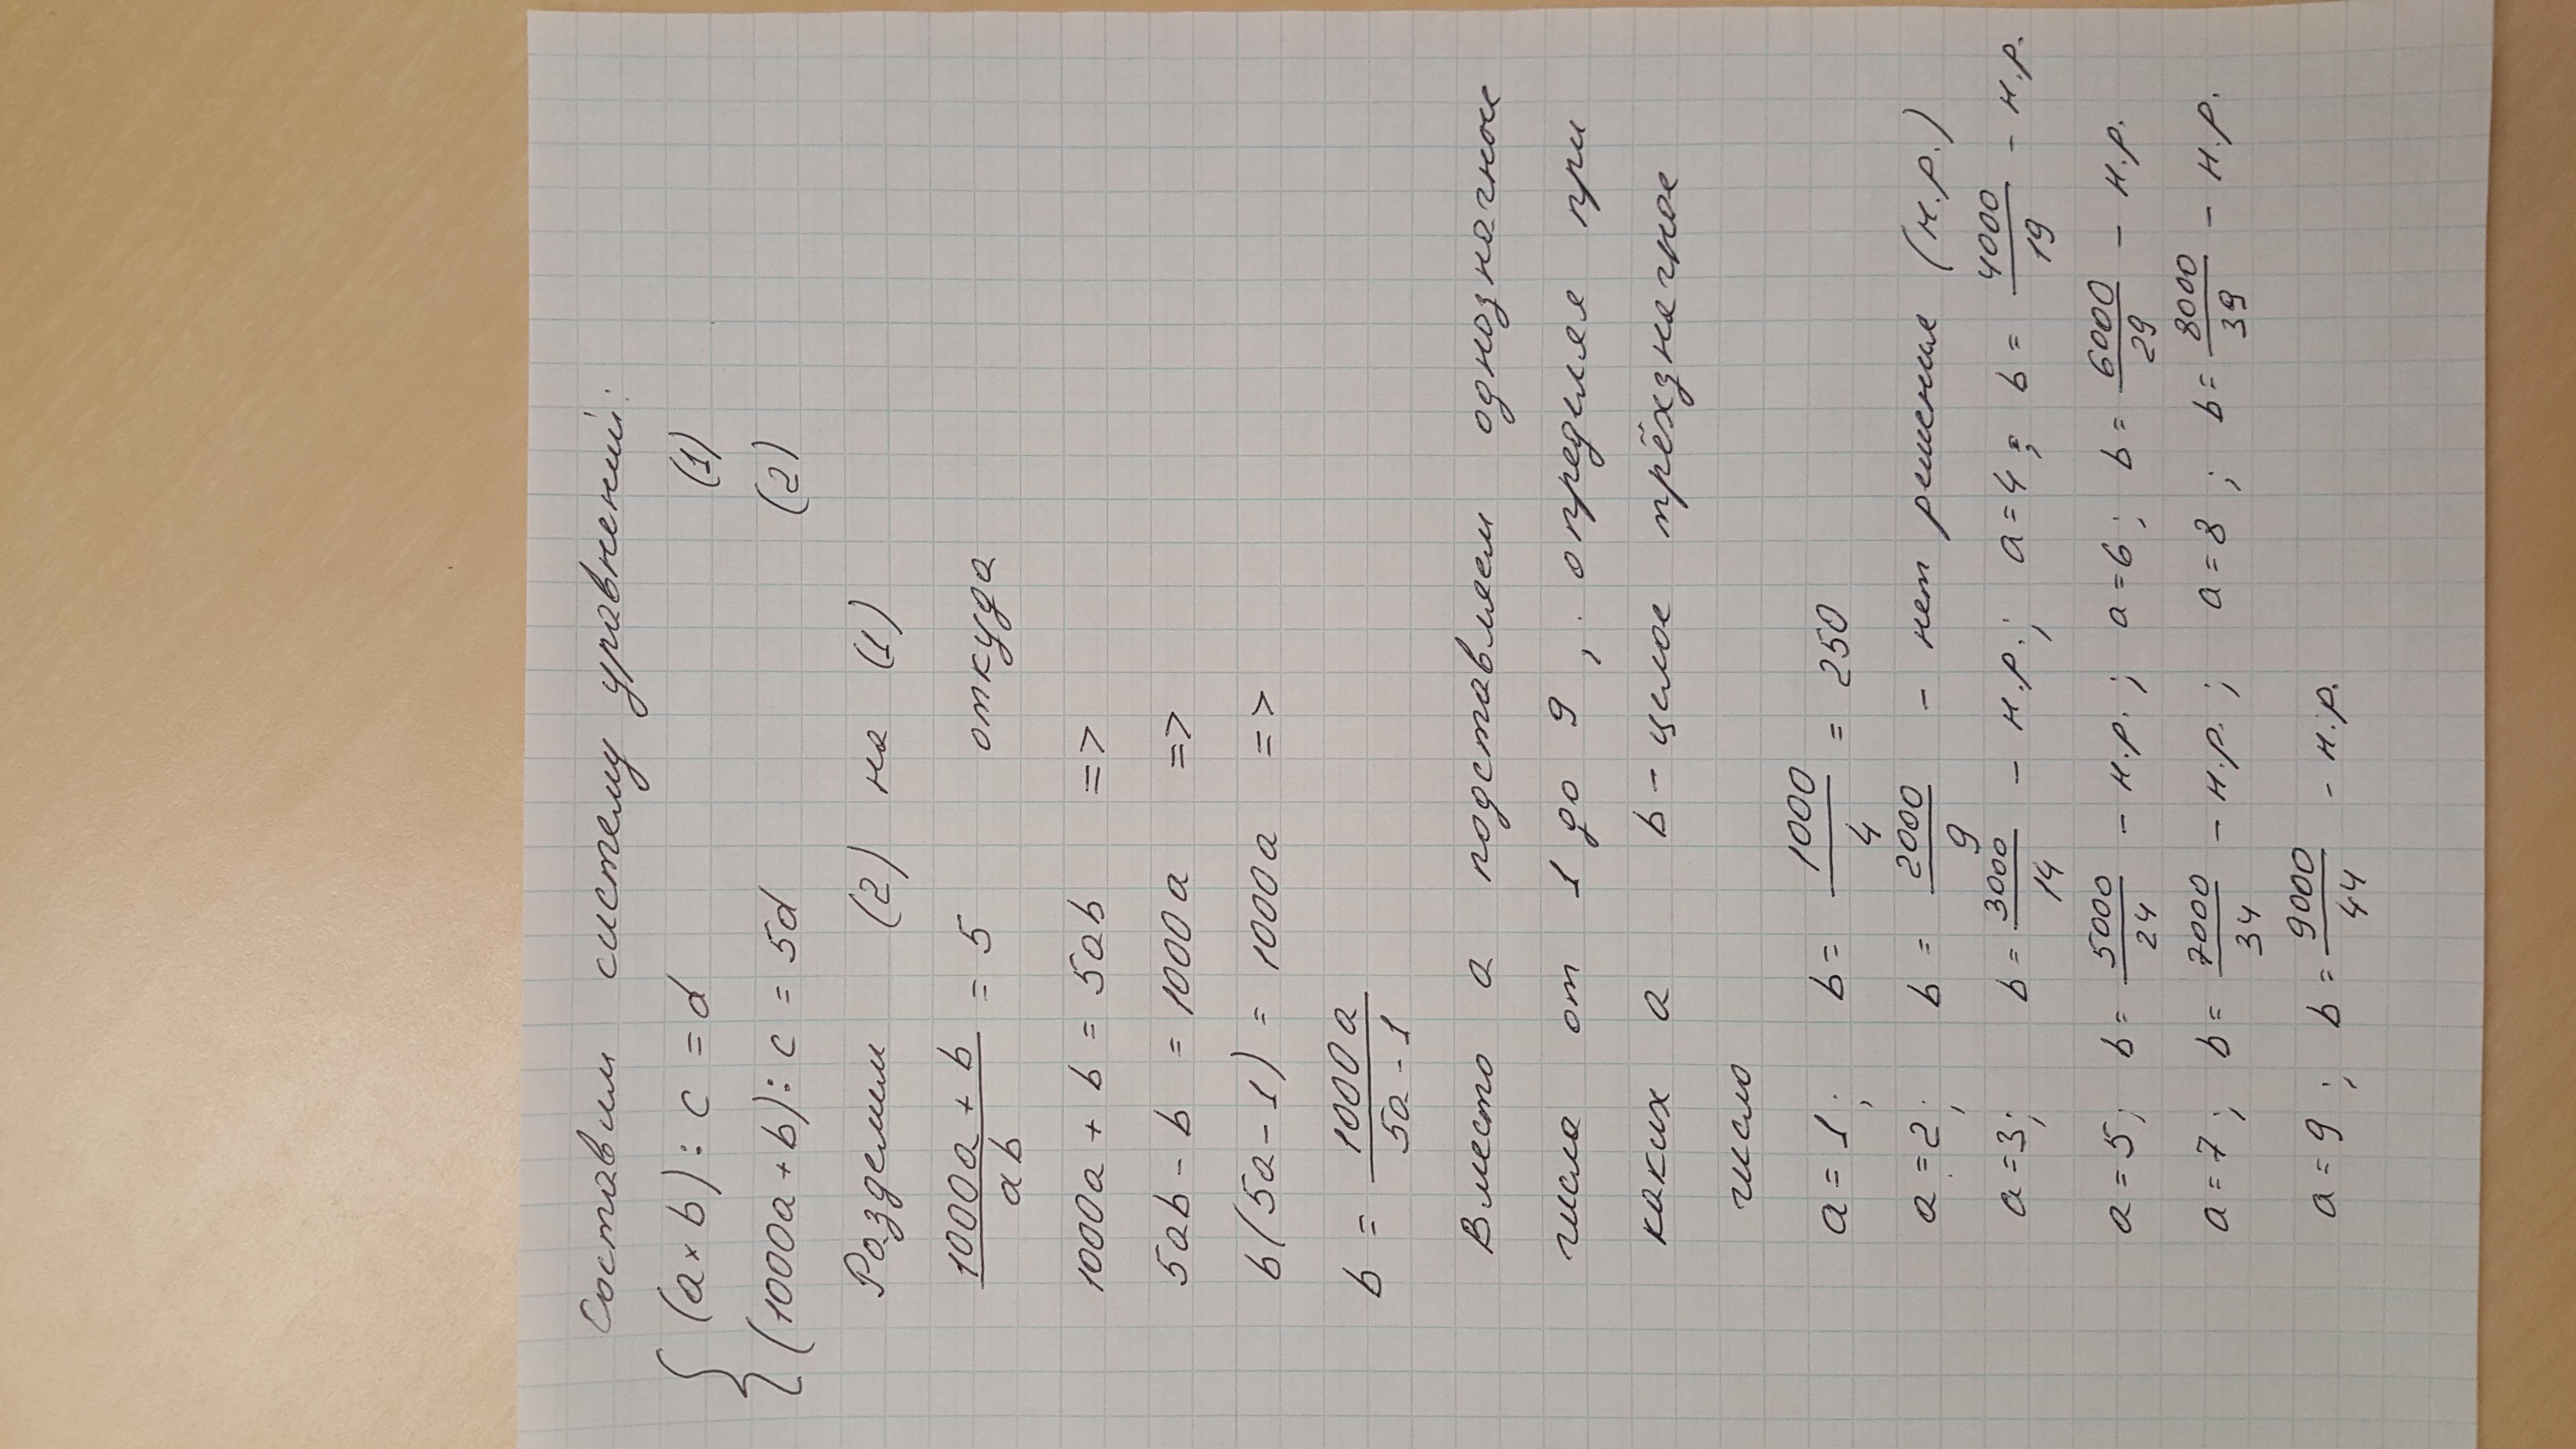 Составим систему уравнений:
{ (a × b) : c = d (1)
(1000a + b) : c = 5d (2)
Разделим (2) на (1)
1000a + b / ab = 5 откуда
1000a + b = 5ab =>
5ab - b = 1000a =>
b(5a - 1) = 1000a =>
b = 1000a / 5a - 1
Вместо a подставляем однозначное
числа от 1 до 9; определяя при
каких a b - целое трёхзначное
число
a = 1; b = 1000/4 = 250
a = 2; b = 2000/9 - нет решения (н.р.)
a = 3; b = 3000/14 - н.р.; a = 4; b = 4000/19 - н.р.
a = 5; b = 5000/24 - н.р.; a = 6; b = 6000/29 - н.р.
a = 7; b = 7000/34 - н.р.; a = 8; b = 8000/39 - н.р.
a = 9; b = 9000/44 - н.р.